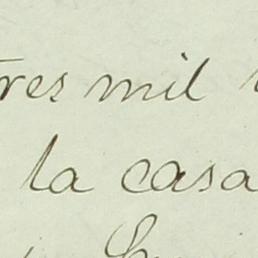 tres mil
la casa